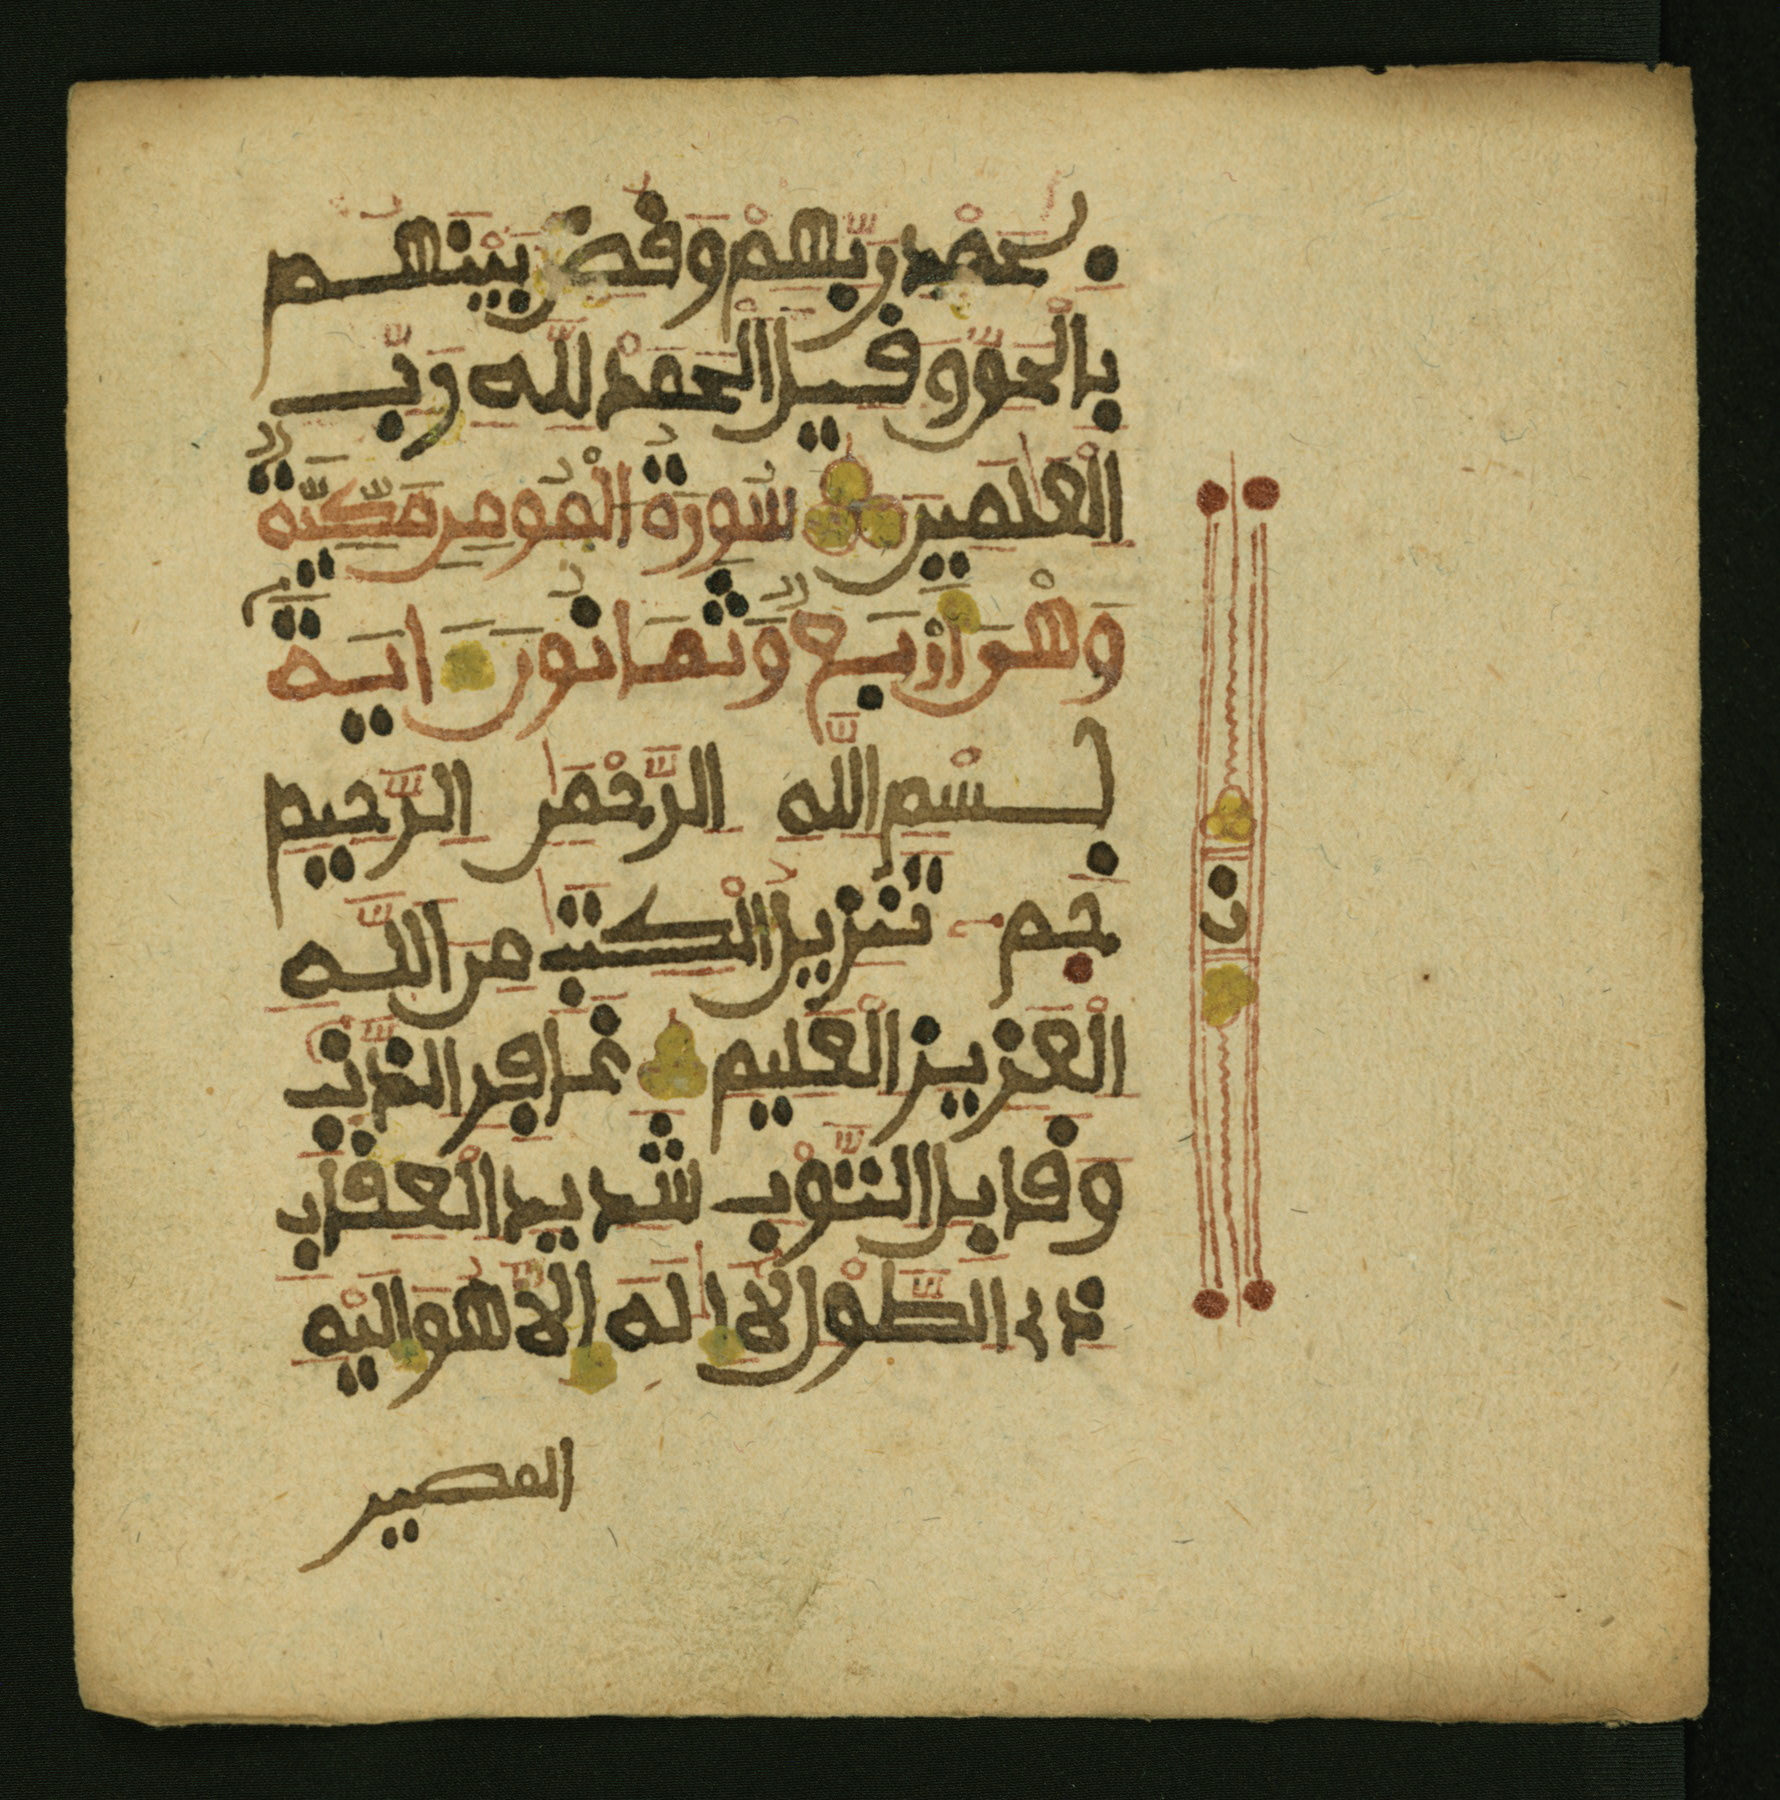 بحمد ربهم وقضى بينهم
بالحق وقيل الحمد لله رب
العلمين سورة المومن مكية
وهى اربع وثمانون اية
بسم الله الرحمن الرحيم
حم تنزيل الكتب من الله
العزيز العليم غافر الذنب
وقابل التوب شديد العقاب
ذى الطول لا اله الا هو اليه
المصير
ن